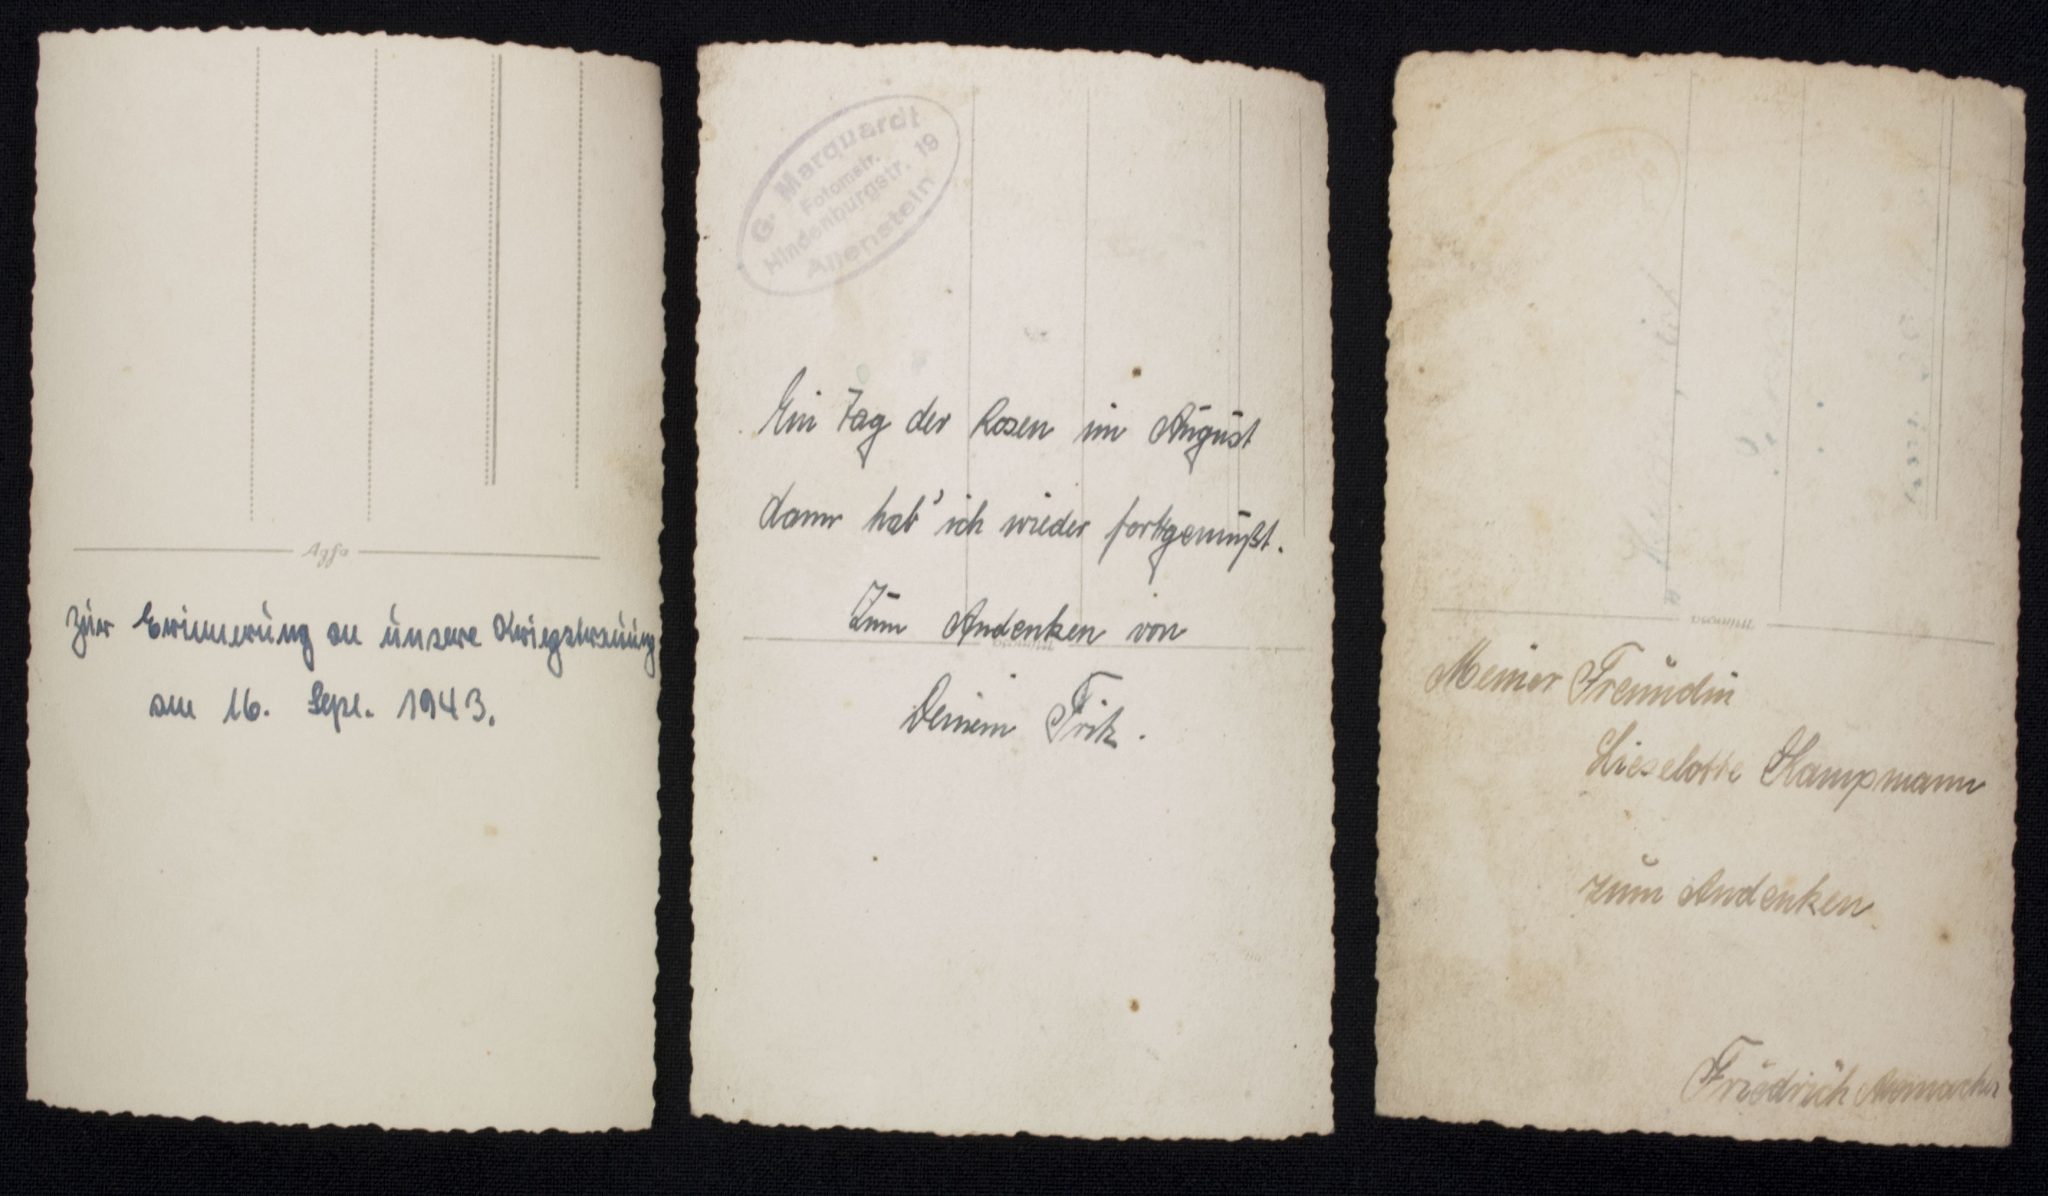 Agfa
Zur Erinnerung an unsere Kriegstrauung
am 16. Sept. 1943.
G. Marquardt
Fotomstr.
Hindenburgstr. 19
Allenstein
Ein Tag der Rosen im August
dann hab' ich wieder fortgemußt.
Zum Andenken von
Deinem Fritz.
Meiner Freundin
Lieselotte Kampmann
zum Andenken
Friedrich